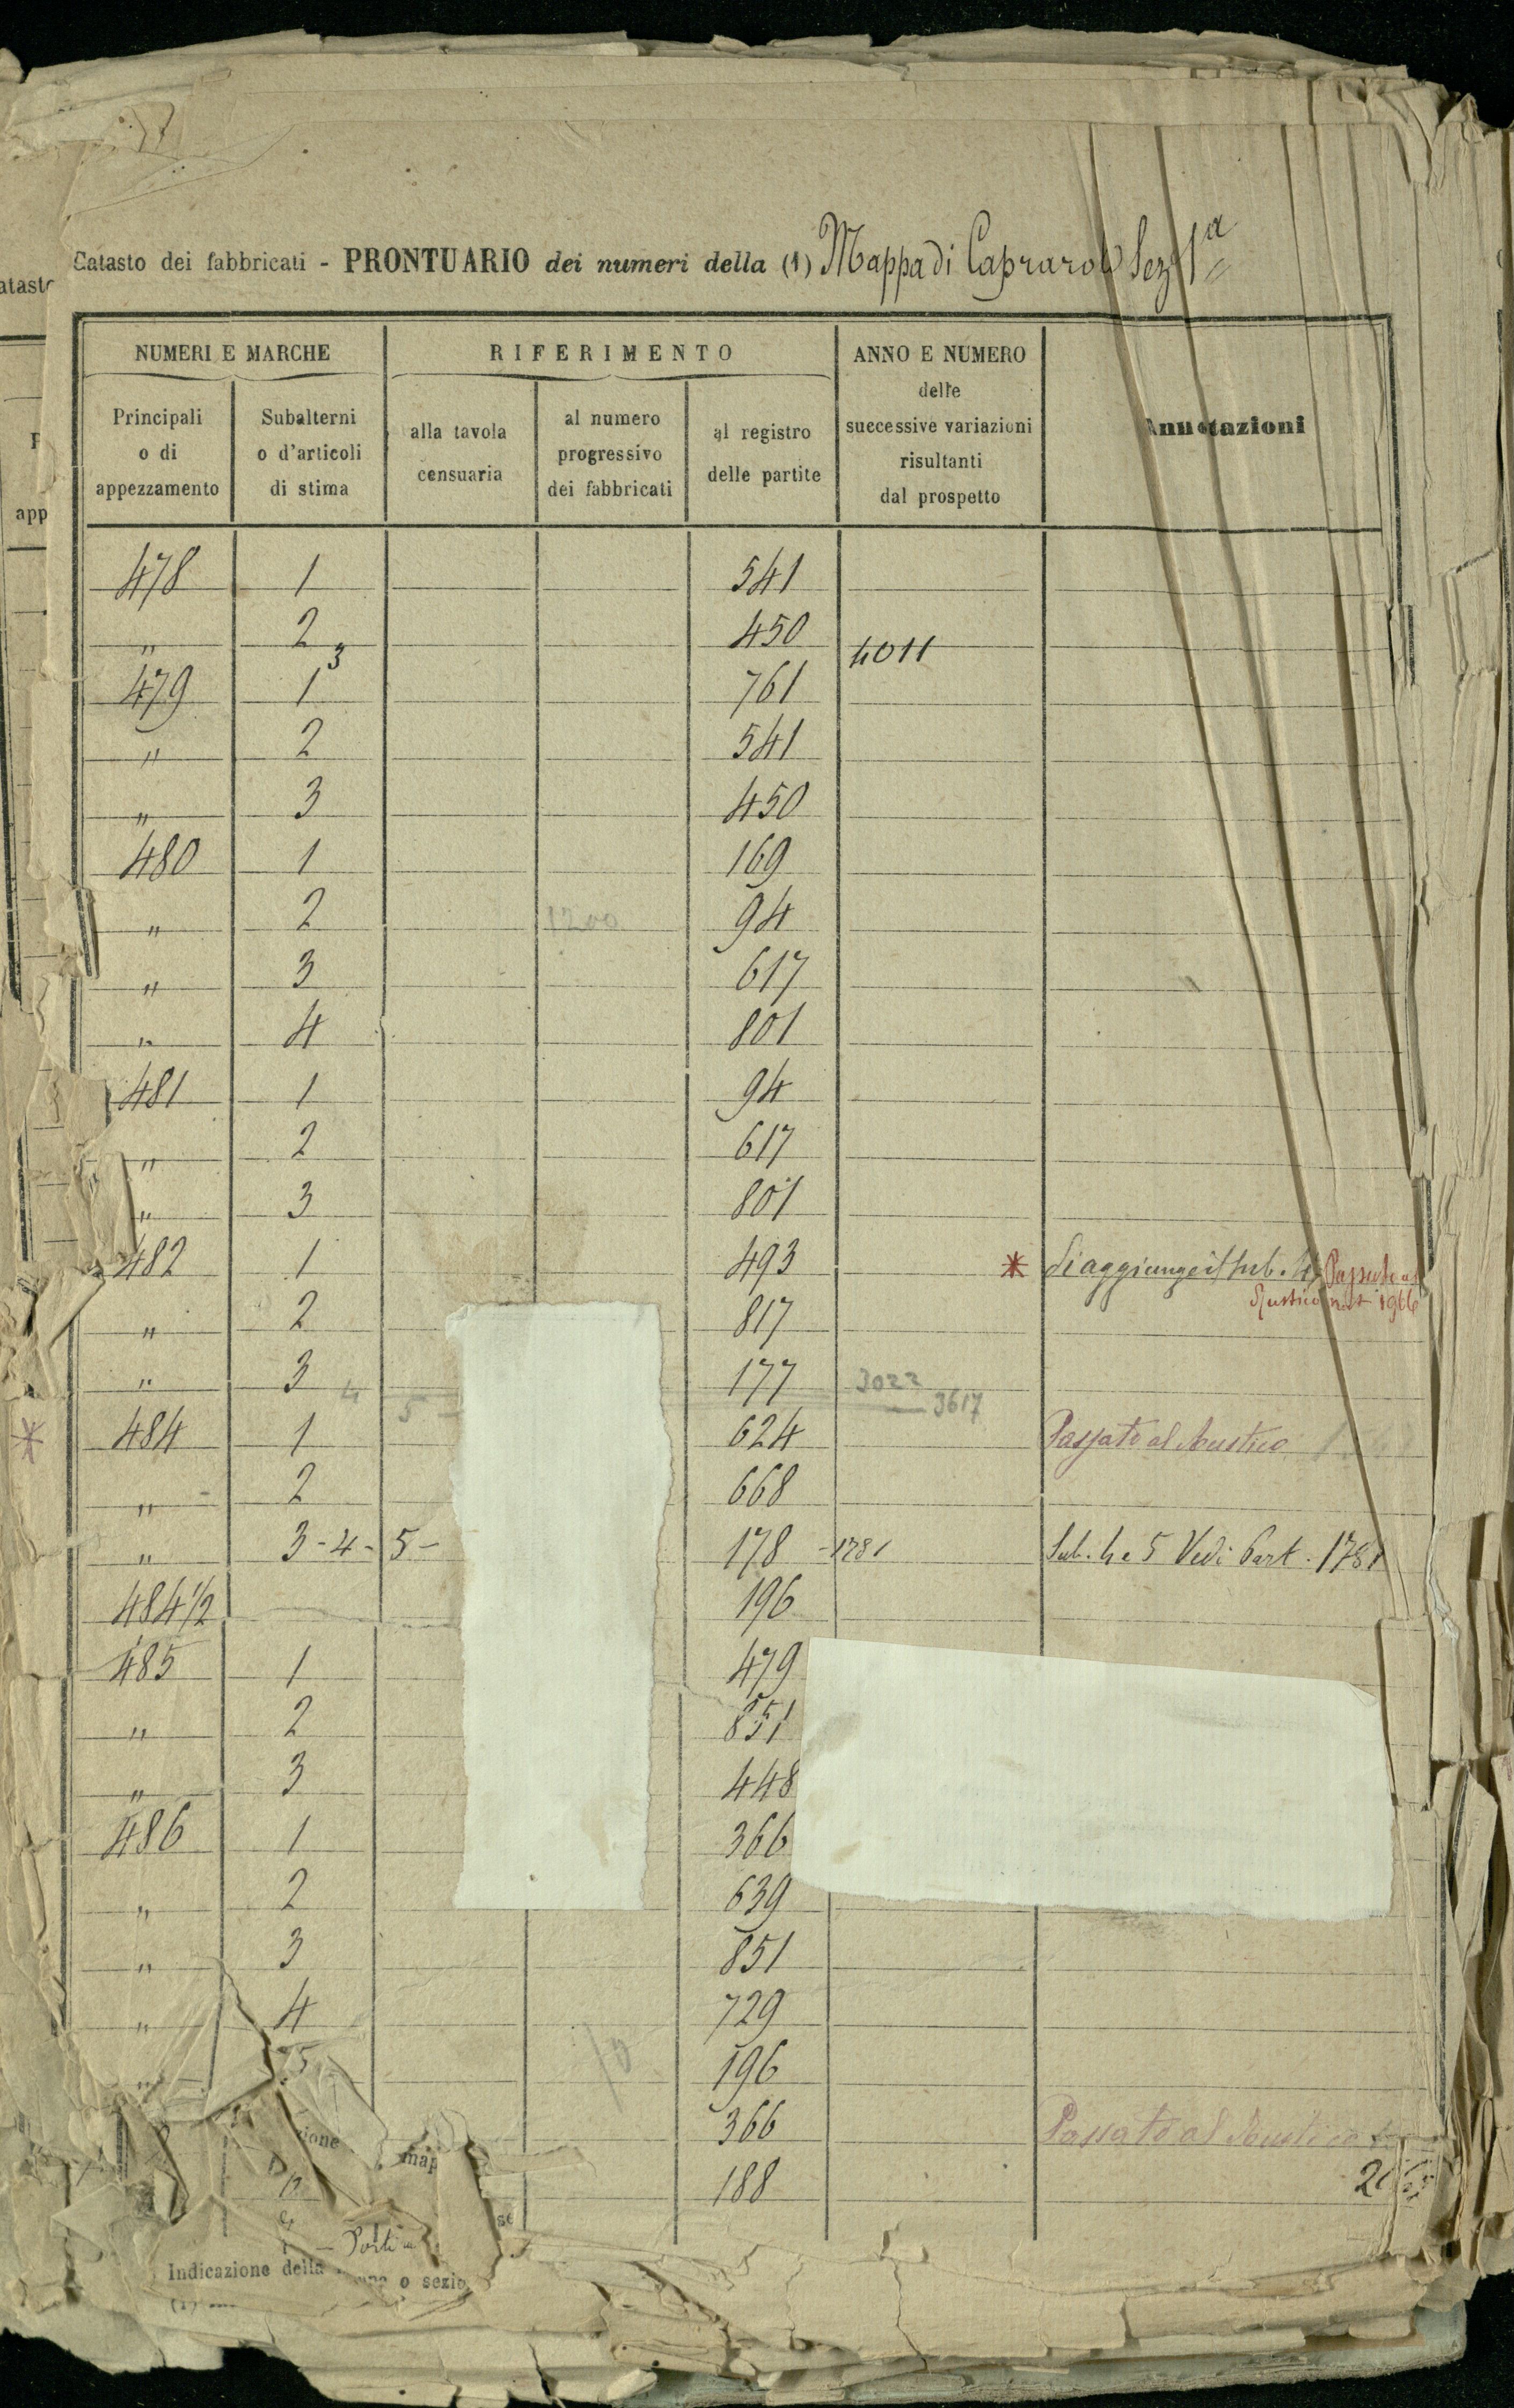 Catasto dei fabbricati - PRONTUARIO dei numeri della (1) Mappa di Caprarola Sez 1ª
NUMERI E MARCHE
RIFERIMENTO
ANNO E NUMERO
delle
successive variazioni
risultanti
dal prospetto
Annotazioni
Principali
o di
appezzamento
Subalterni
o d'articoli
di stima
alla tavola
censuaria
al numero
progressivo
dei fabbricati
al registro
delle partite
478 1 541
" 2 450
3 4011
479 1 761
" 2 541
" 3 450
480 1 169
" 2 1200 94
" 3 617
" 4 801
481 1 94
" 2 617
" 3 801
482 1 493 * Si aggiunge il sub. 4 Passato al
Rustico 1966
" 2 817
" 3 177 3022
4 5 - 3617
* 484 1 624 Passato al Rustico
" 2 668
" 3-4-5- 178 - 1781 Sub. 4 e 5 Vedi Part. 1781
484 1/2 196
485 1 479
" 2 851
" 3 448
486 1 366
" 2 639
" 3 851
" 4 729
" 5 196
366 Passato al Rustico
188
Indicazione della
o sezio